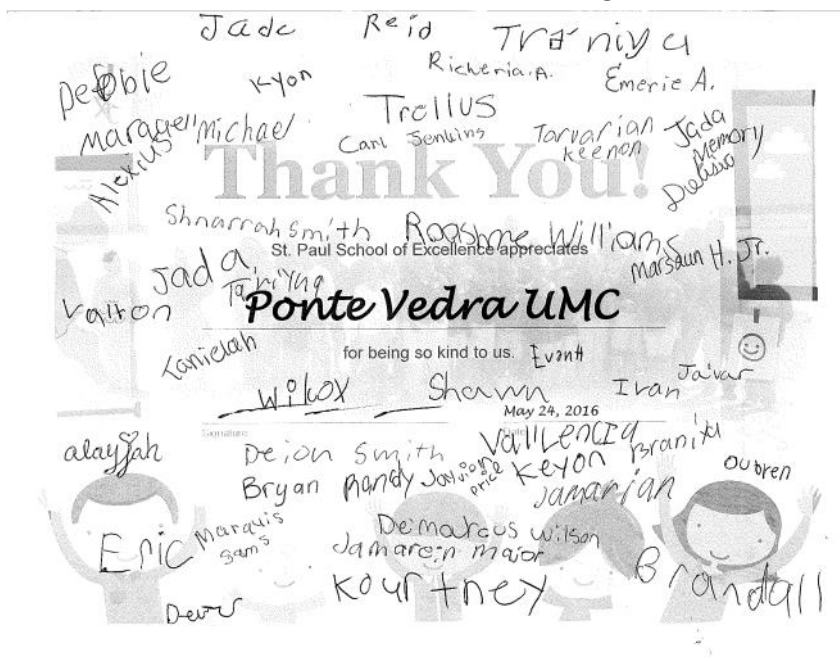 Jade Reid Tra'niya
Debbie Kyon Richeria.A. Emerie A.
Trellus
Michael Carl Jenkins Tarvarian Keenon Jada
Memory
Alexius
Thank You!
Shnarrah Smith Williams
St. Paul School of Excellence appreciates
Marsaun H. Jr.
Jada
Valton
Ponte Vedra UMC
Tanielah
for being so kind to us. Evant
Wilcox Shawn Ivan Ja'var
May 24, 2016
Signature Date
alayjah Deion Smith Vallencia Branita
Bryan Randy Javion Price Keyon Oubren
Jamarian
Eric Marquis Sams Demarcus Wilson
Jamarein major
Kourtney Brandall